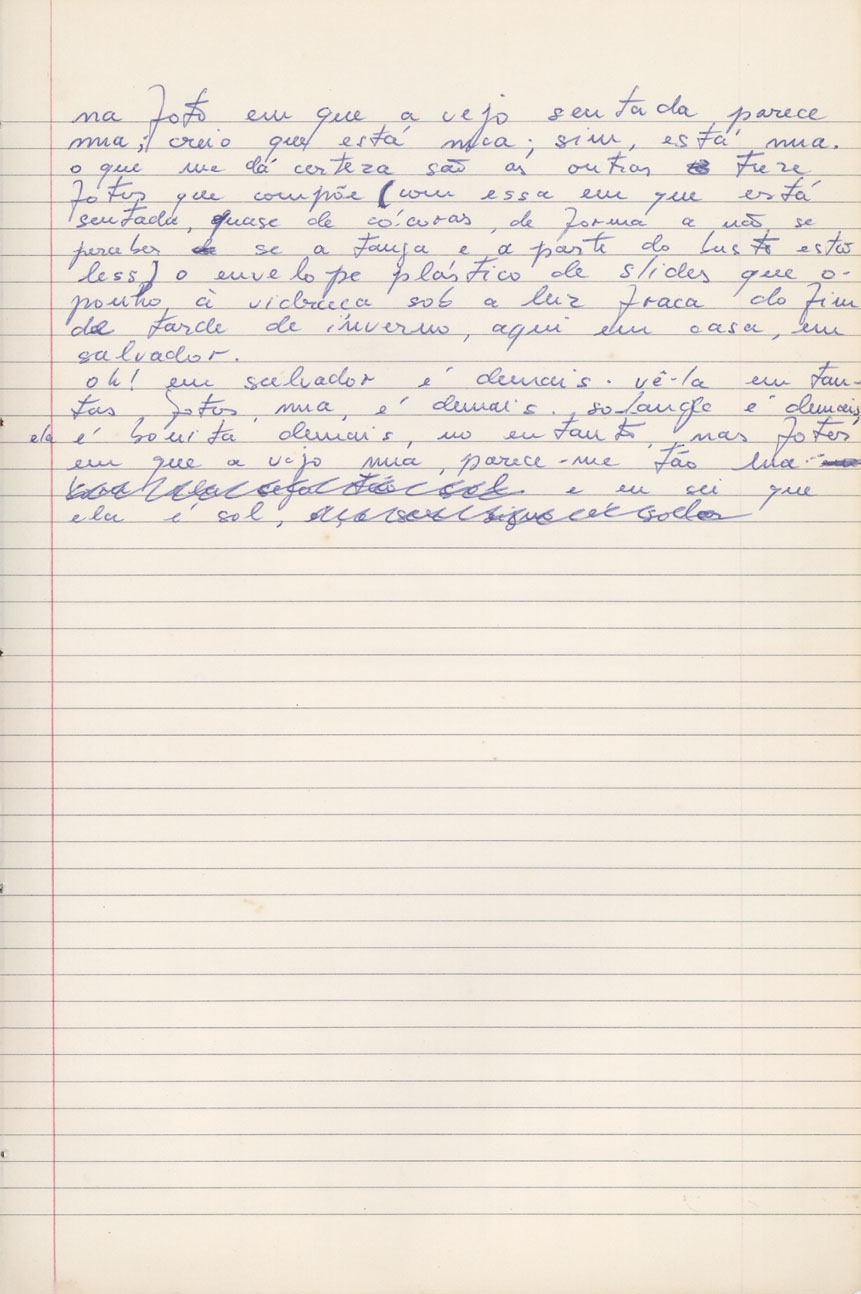 na foto em que a vejo sentada parece
nua; creio que está nua; sim, está nua.
o que me dá certeza são as outras treze
fotos que compõe (com essa em que está
sentada, quase de cócoras, de forma a não se
perceber se a tanga e a parte do busto estão
less) o envelope plástico de slides que o-
ponho à vidraça sob a luz fraca do fim
de tarde de inverno, aqui em casa, em
salvador.
oh! em salvador é demais. vê-la em tan-
tas fotos, nua, é demais. solange é demais,
ela é bonita demais, no entanto, nas fotos
em que a vejo nua, parece-me tão lua
e eu sei que
ela é sol,